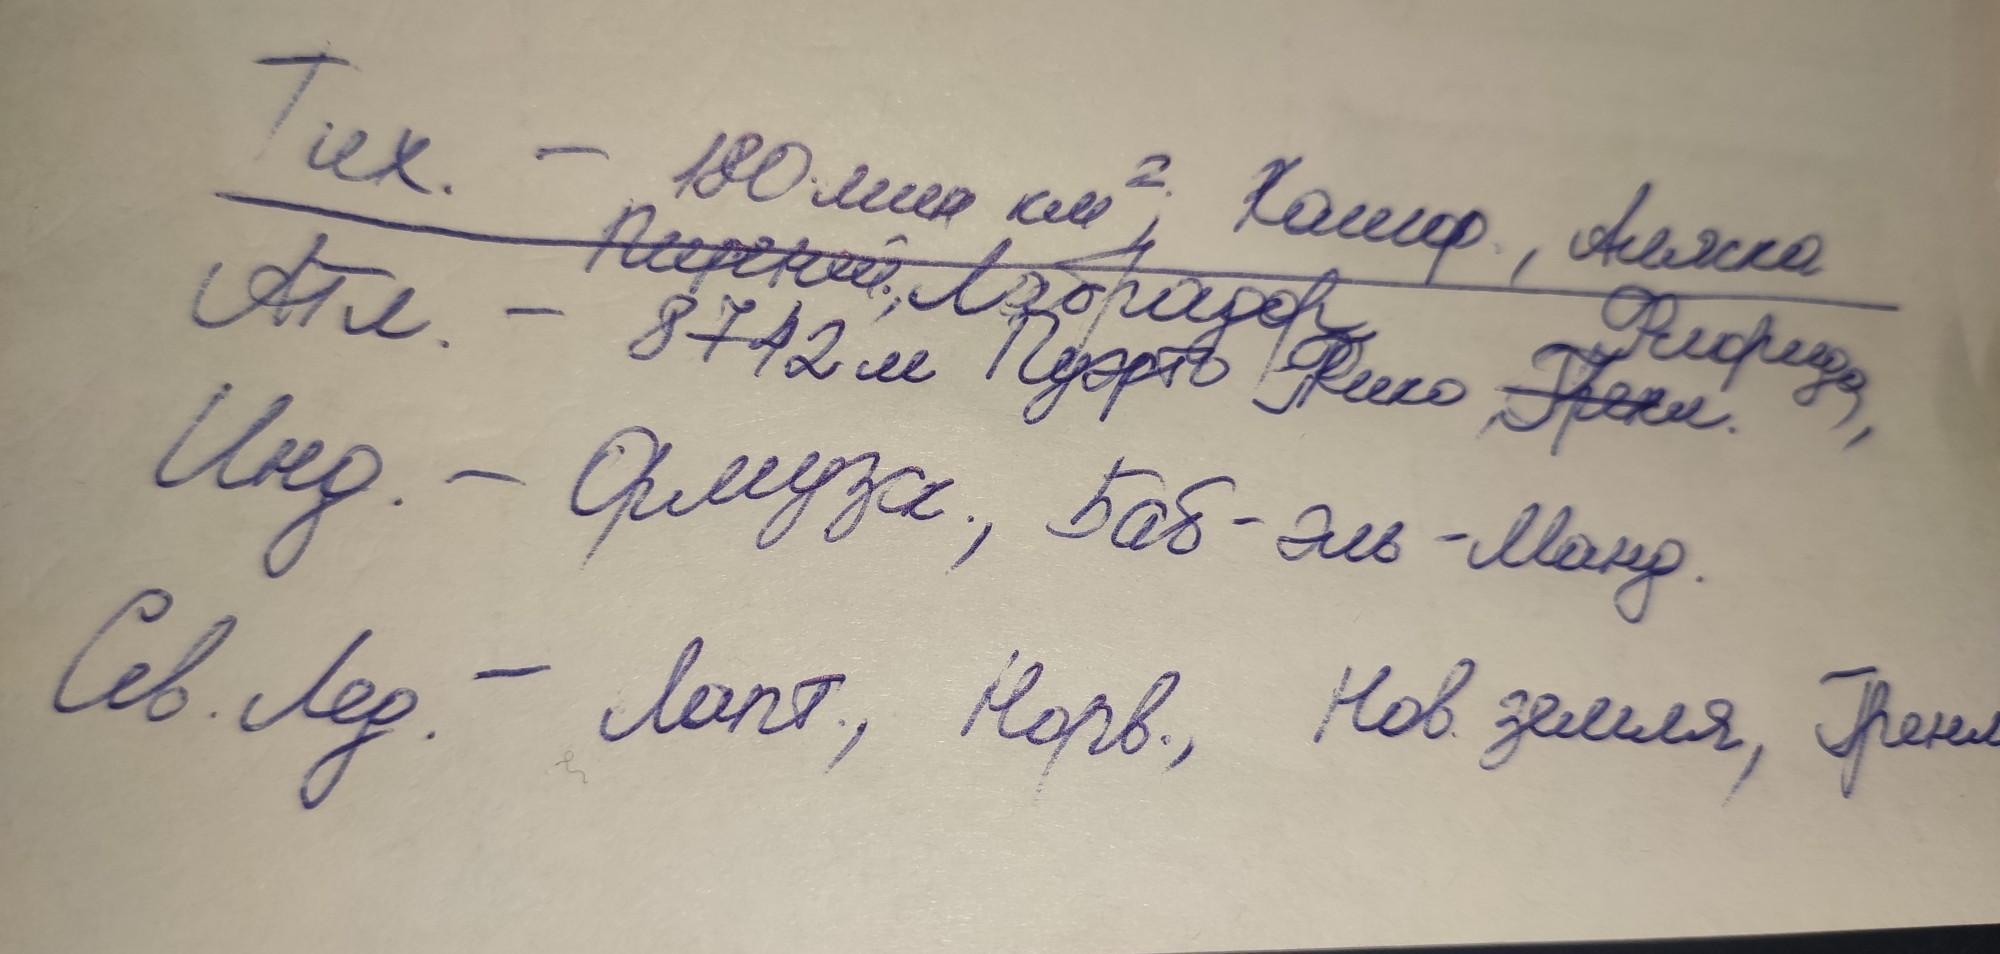 Тих. – 180 млн км², Калиф., Аляска
Пирений., Лабрадор Флорида,
Атл. – 8742 м Пуэрто Рико, Гренл.
Инд. – Ормузск., Баб-эль-Манд.
Сев. Лед. – Лапт., Норв., Нов. земля, Гренл